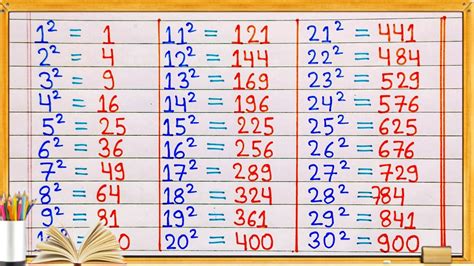 1² = 1
2² = 4
3² = 9
4² = 16
5² = 25
6² = 36
7² = 49
8² = 64
9² = 81
11² = 121
12² = 144
13² = 169
14² = 196
15² = 225
16² = 256
17² = 289
18² = 324
19² = 361
20² = 400
21² = 441
22² = 484
23² = 529
24² = 576
25² = 625
26² = 676
27² = 729
28² = 784
29² = 841
30² = 900